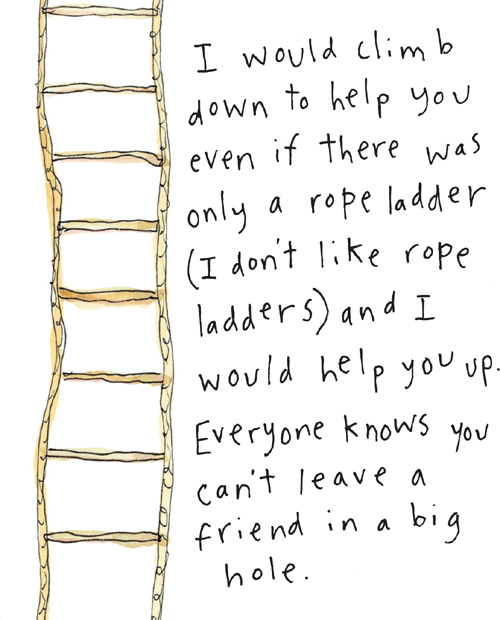 I would climb
down to help you
even if there was
only a rope ladder
(I don't like rope
ladders) and I
would help you up.
Everyone knows you
can't leave a
friend in a big
hole.